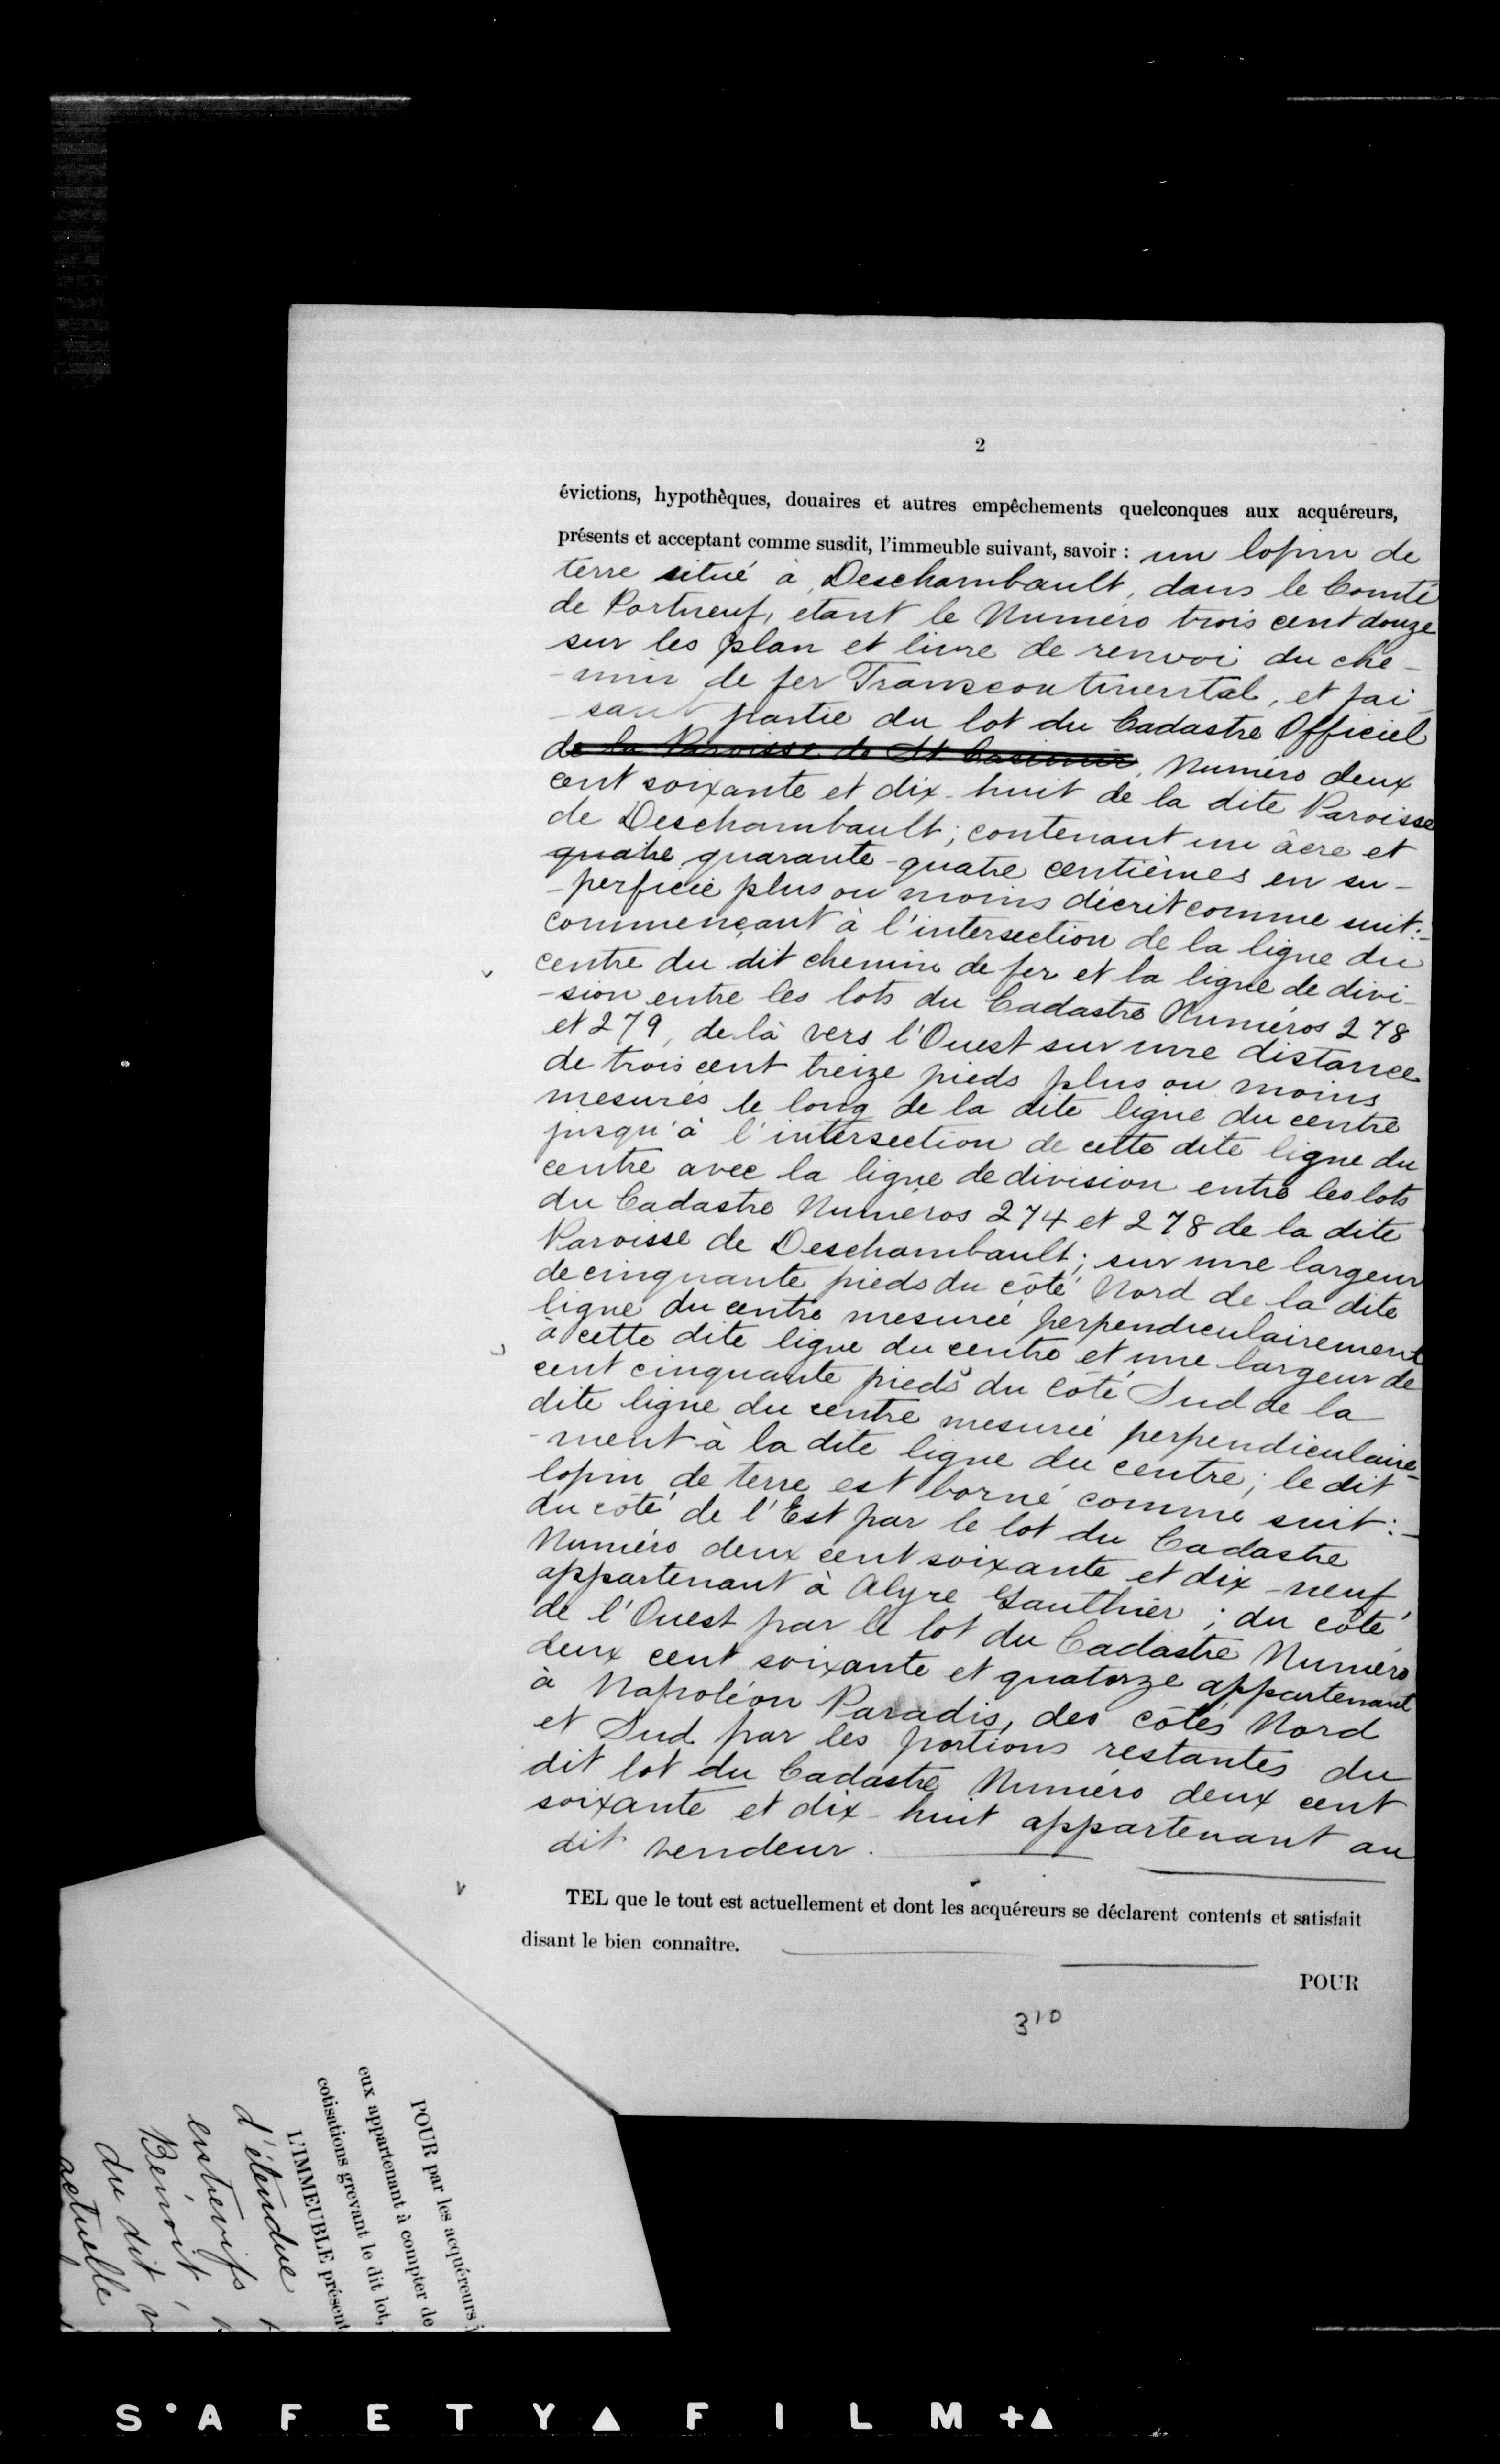 2
évictions, hypothèques, douaires et autres empêchements quelconques aux acquéreurs,
présents et acceptant comme susdit, l'immeuble suivant, savoir : un lopin de
terre situé à Deschambault, dans le Comté
de Portneuf, étant le Numéro trois cent douze
sur les plan et livre de renvoi du che-
-min de fer Transcontinental, et fai-
-sant partie du lot du Cadastre Officiel
de la Paroisse de St Casimir, Numéro deux
cent soixante et dix-huit de la dite Paroisse
de Deschambault; contenant un âcre et
quatre quarante-quatre centièmes en su-
-perficie plus ou moins décrit comme suit:-
commençant à l'intersection de la ligne du
centre du dit chemin de fer et la ligne de divi-
-sion entre les lots du Cadastre Numéros 278
et 279, de là vers l'Ouest sur une distance
de trois cent treize pieds plus ou moins
mesurés le long de la dite ligne du centre
jusqu'à l'intersection de cette dite ligne du
centre avec la ligne de division entre les lots
du Cadastre Numéros 274 et 278 de la dite
Paroisse de Deschambault; sur une largeur
de cinquante pieds du côté Nord de la dite
ligne du centre mesurée perpendiculairement
à cette dite ligne du centre et une largeur de
cent cinquante pieds du côté Sud de la
dite ligne du centre mesurée perpendiculaire-
-ment à la dite ligne du centre; le dit
lopin de terre est borné comme suit:-
du côté de l'Est par le lot du Cadastre
Numéro deux cent soixante et dix-neuf
appartenant à Alyre Gauthier; du côté
de l'Ouest par le lot du Cadastre Numéro
deux cent soixante et quatorze appartenant
à Napoléon Paradis, des côtés Nord
et Sud par les portions restantes du
dit lot du Cadastre Numéro deux cent
soixante et dix-huit appartenant au
dit vendeur.
TEL que le tout est actuellement et dont les acquéreurs se déclarent contents et satisfait
disant le bien connaître.
POUR
310
POUR par les acquéreurs
eux appartenant à compter de
cotisations grevant le dit lot,
L'IMMEUBLE présent
d'étendue
entrevifs
Benoit
du dit
actuelle
S A F E T Y ▲ F I L M +▲